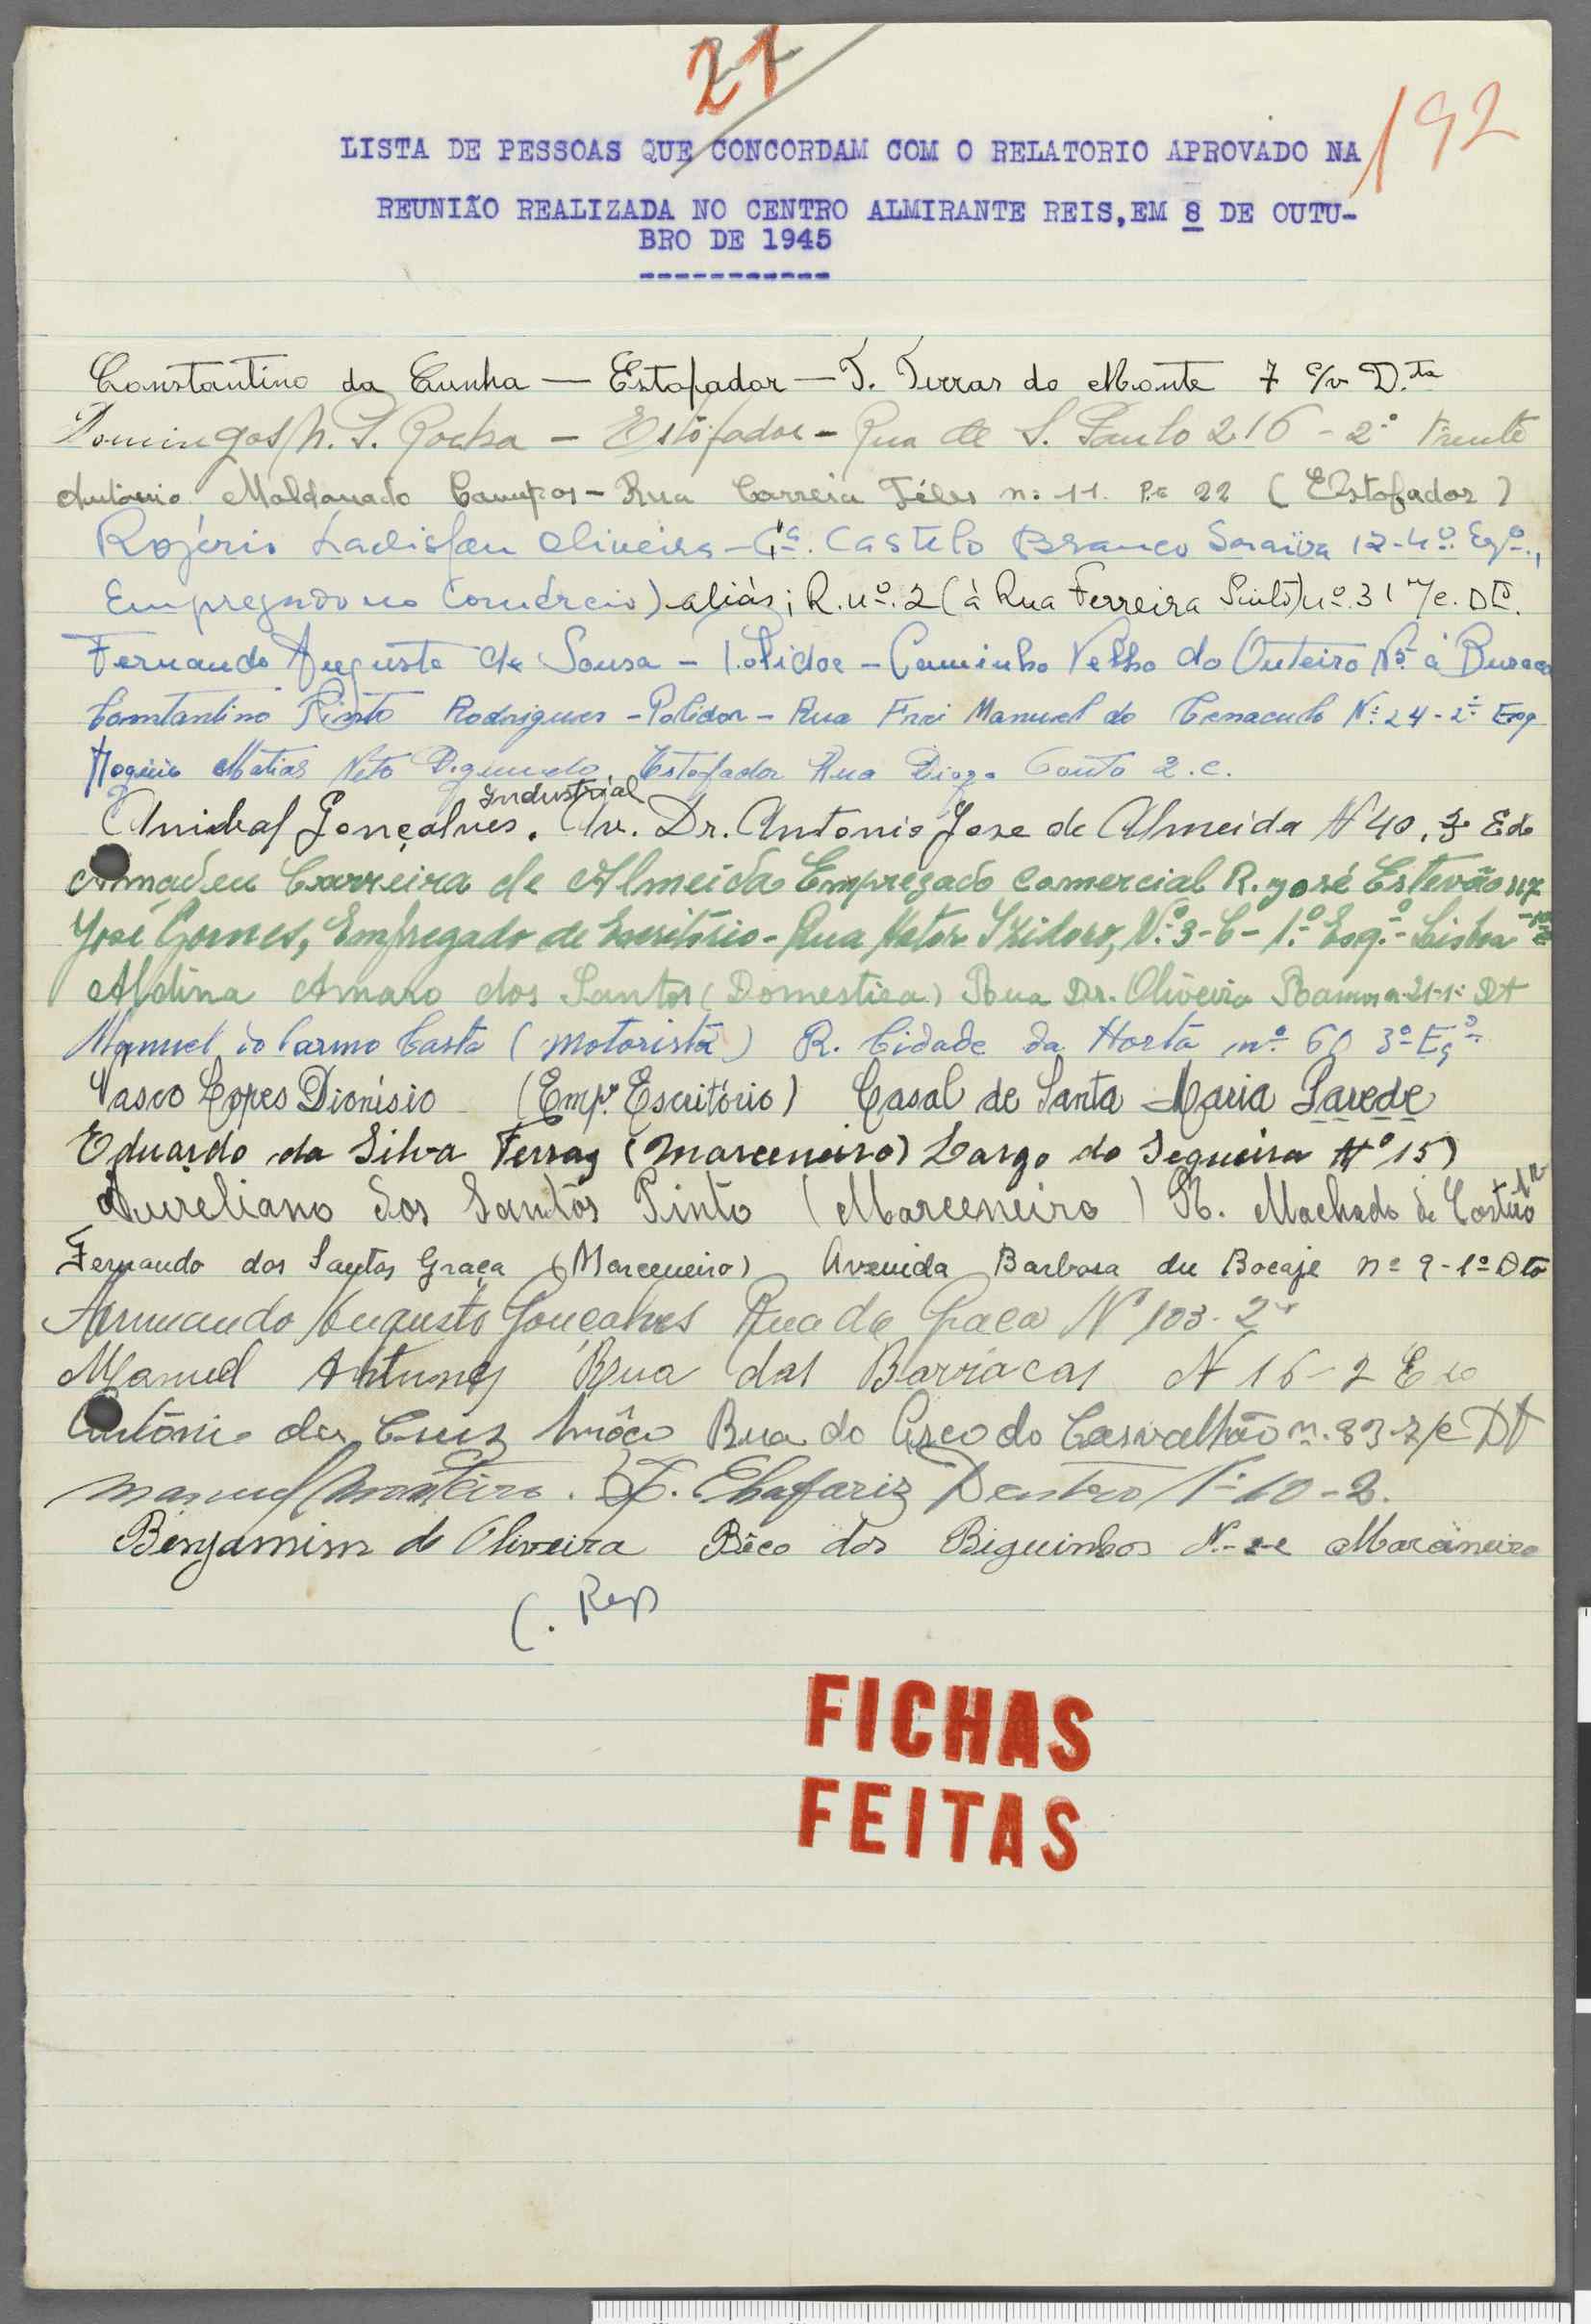 21
192
LISTA DE PESSOAS QUE CONCORDAM COM O RELATORIO APROVADO NA
REUNIÃO REALIZADA NO CENTRO ALMIRANTE REIS, EM 8 DE OUTU-
BRO DE 1945
-----------
Constantino da Cunha — Estofador — T. Terras do Monte 7 c/v D.ta
Domingos N. S. Rocha — Estófador — Rua de S. Paulo 216 - 2º Frente
António Maldonado Campos - Rua Correia Téles nº 11. 22 (Estofador)
Rogério Ladislau Oliveira - Cç.ª Castelo Branco Saraiva 12-4º Esqº.,
Empregado no Comércio) aliás; R. nº. 2 (à Rua Ferreira Pinto) nº. 31 r/c. Dtº.
Fernando Augusto de Sousa - Polidor - Caminho Velho do Outeiro Nº5 à Buraca
Constantino Pinto Rodrigues - Polidor - Rua Frei Manuel do Cenaculo Nº 24 - 2º Esq
Matias Neto Estofador Rua Diogo Couto 2. c.
Industrial
Anibal Gonçalves. Av. Dr. Antonio Jose de Almeida Nº 40, Edo
Amadeu Carreira de Almeida Empregado Comercial R. José Estevão 117
José Gomes, Empregado de Escritório - Rua Heitor Izidoro, N.º 3-C - 1.º Esq.º - Lisboa
Aldina Amaro dos Santos (Domestica) Rua Dr. Oliveira Ramos n. 21-1º Dt
Manuel do Carmo Costa (motorista) R. Cidade da Horta nº 60 3º Eqº
Vasco Lopes Dionísio (Emp.º Escritório) Casal de Santa Maria Parede
Eduardo da Silva Ferraz (Marceneiro) Largo do Sequeira Nº 15)
Aureliano dos Santos Pinto (Marceneiro) R. Machado de Castro 12
Fernando dos Santos Graça (Marceneiro) Avenida Barbosa du Bocaje nº 9 - 1º Dto
Armando Augusto Gonçalves Rua da Graça Nº 103 - 2º
Manuel Antunes Rua das Barracas N 16 - 2 Edo
António da Cruz Rua do Arco do Carvalhão n. 83 - r/c Dt
Manuel Monteiro. Chafariz Dentro Nº 10 - 2.
Benjamim de Oliveira Bêco dos Biguinhos N.- Marcineiro
FICHAS
FEITAS